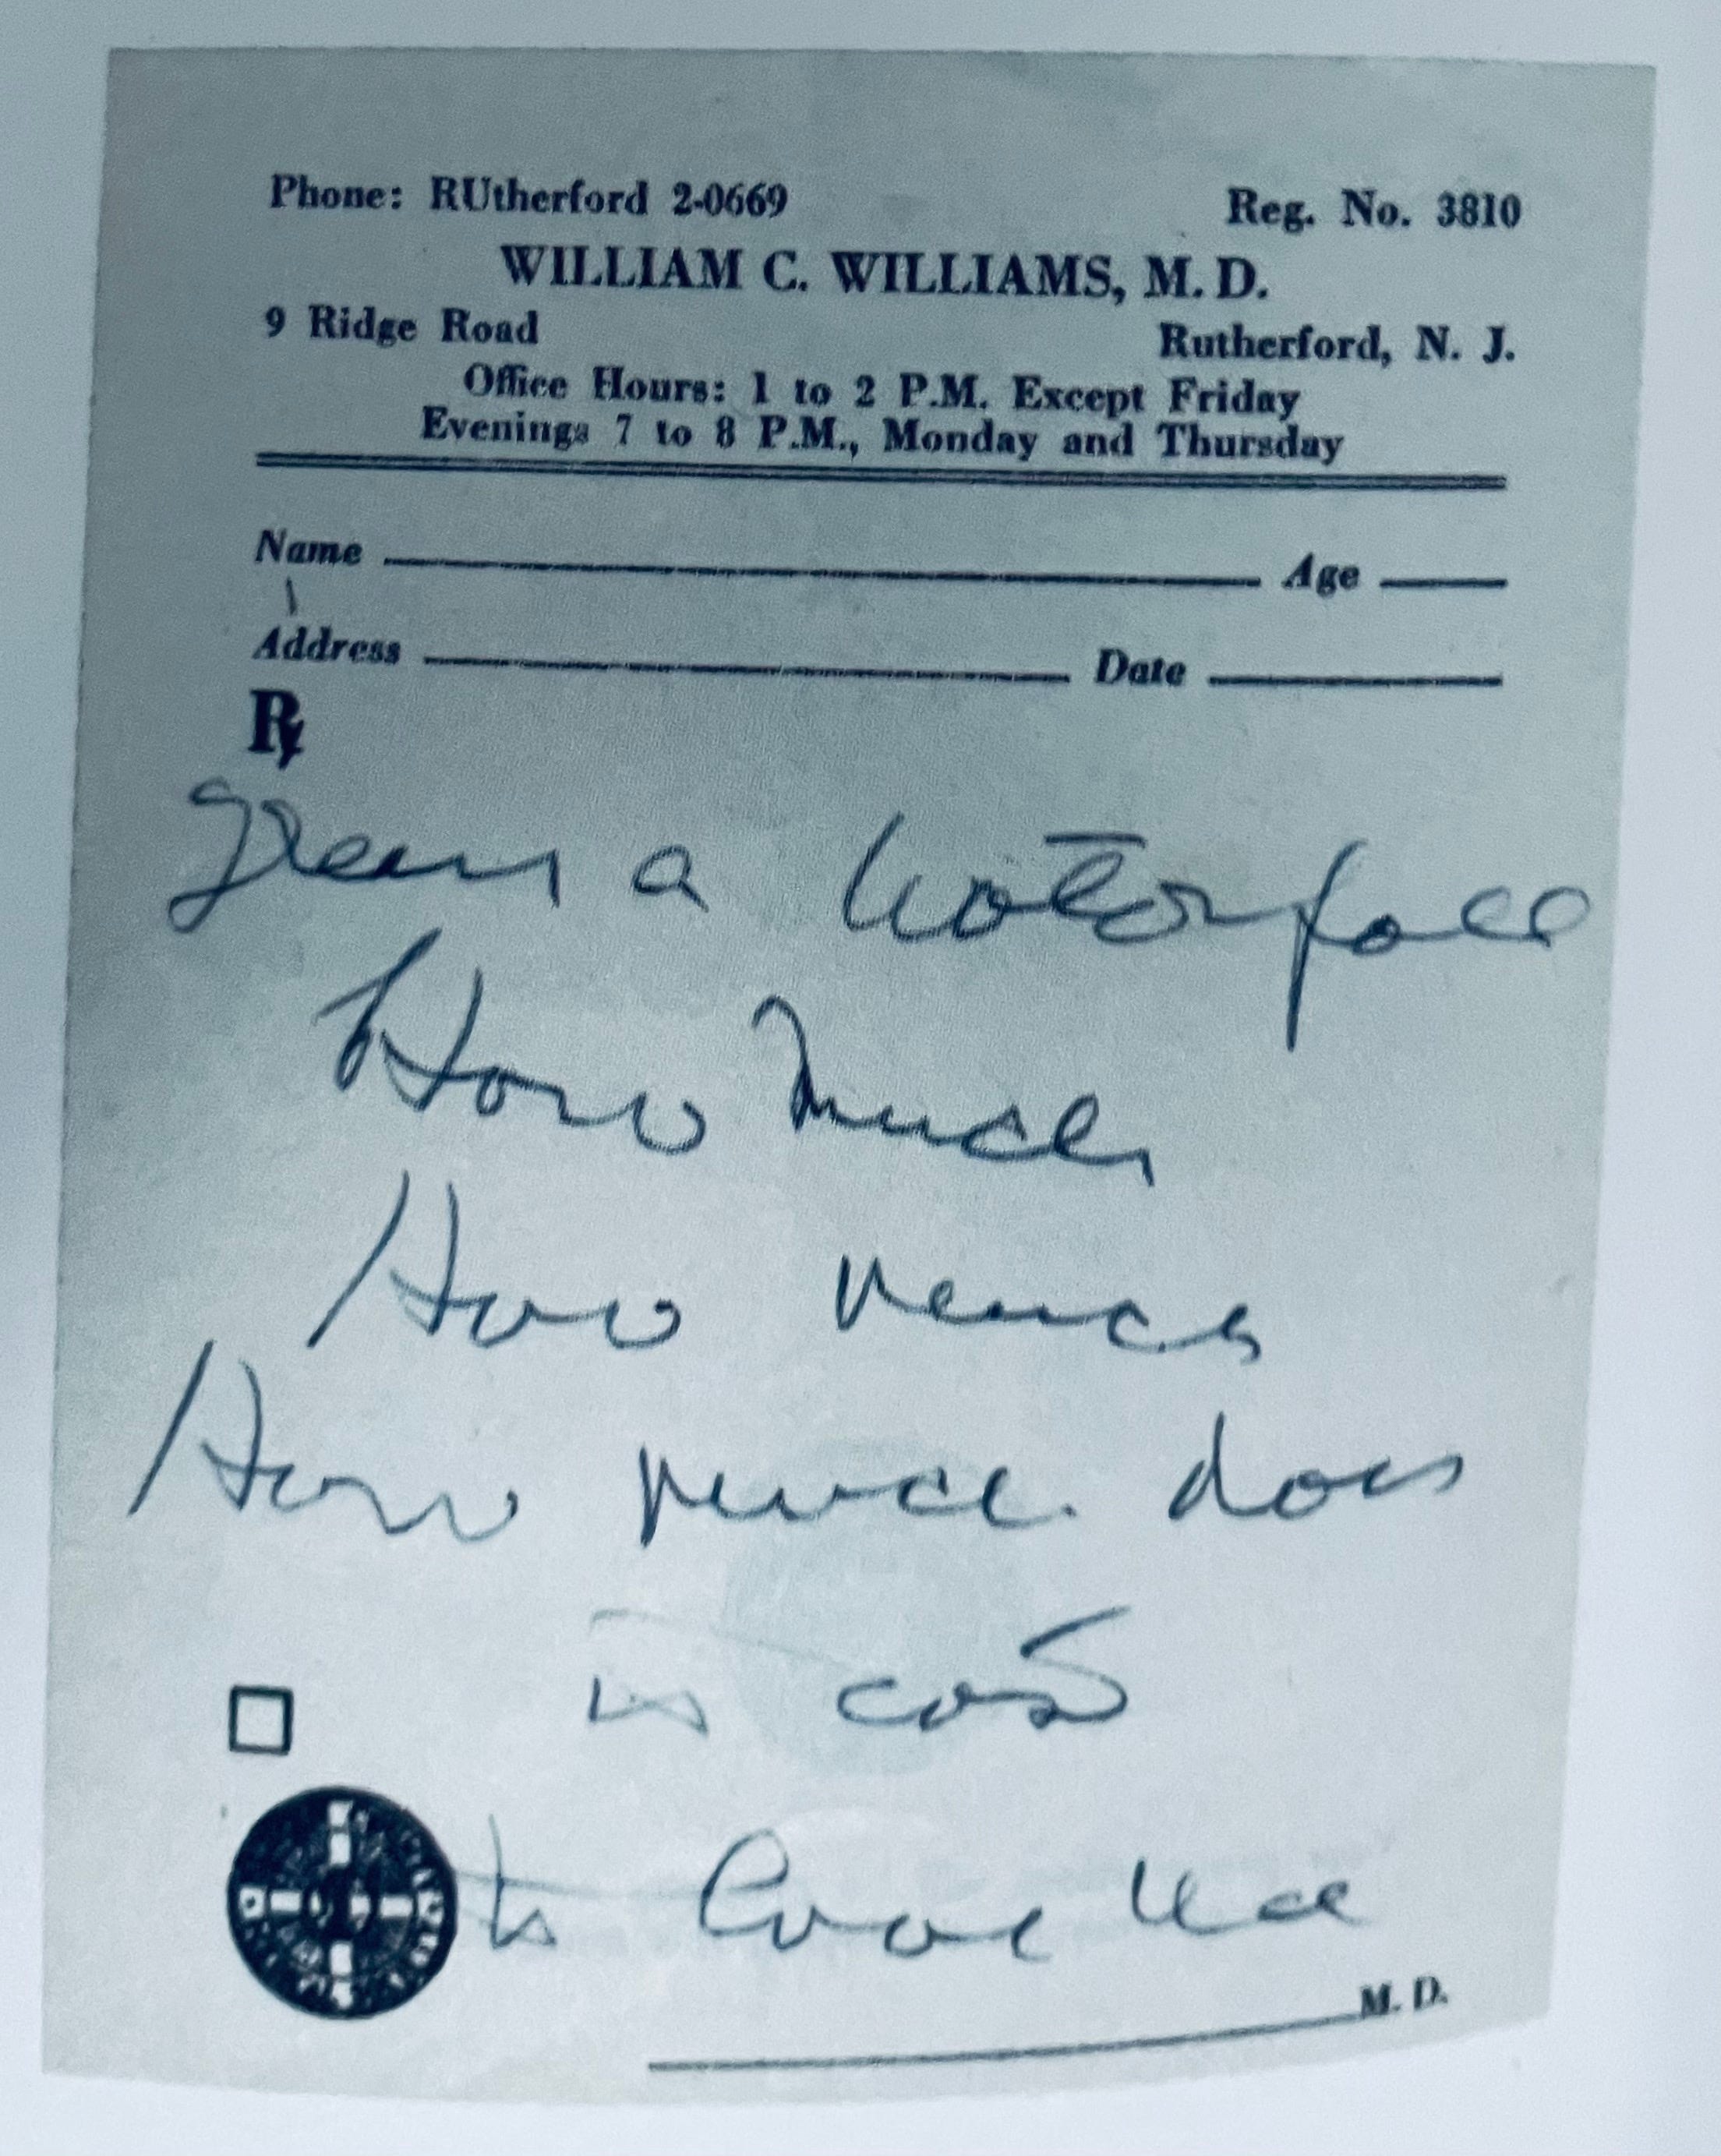 Phone: RUtherford 2-0669 Reg. No. 3810
WILLIAM C. WILLIAMS, M. D.
9 Ridge Road Rutherford, N. J.
Office Hours: 1 to 2 P.M. Except Friday
Evenings 7 to 8 P.M., Monday and Thursday
Name Age
Address Date
℞
a waterfall
How much
How much
How much does
it cost
to love
M. D.